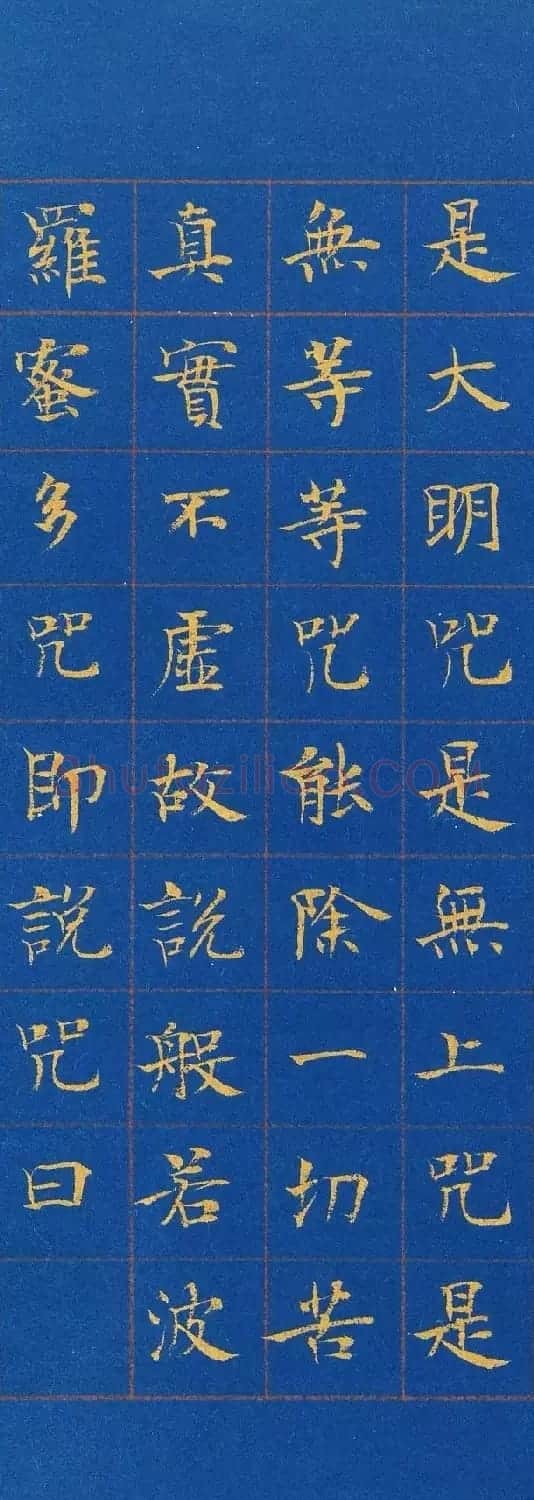 是大明咒是無上咒是
無等等咒能除一切苦
真實不虛故說般若波
羅蜜多咒即說咒曰